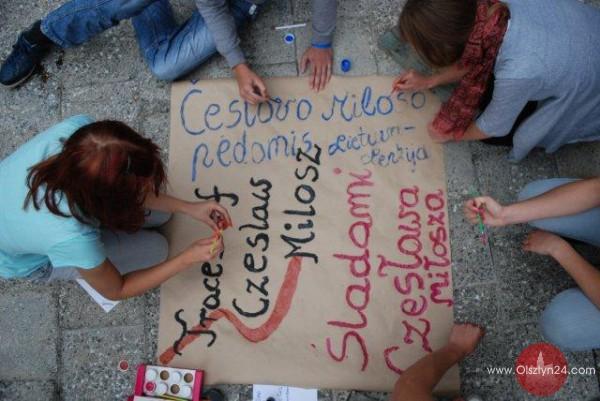 Česlovo Miłošo
pėdomis
Lietuvn-
Lenkija
Traces of
Czeslaw
Milosz
Śladami
Czesława
Miłosza
www.Olsztyn24.com